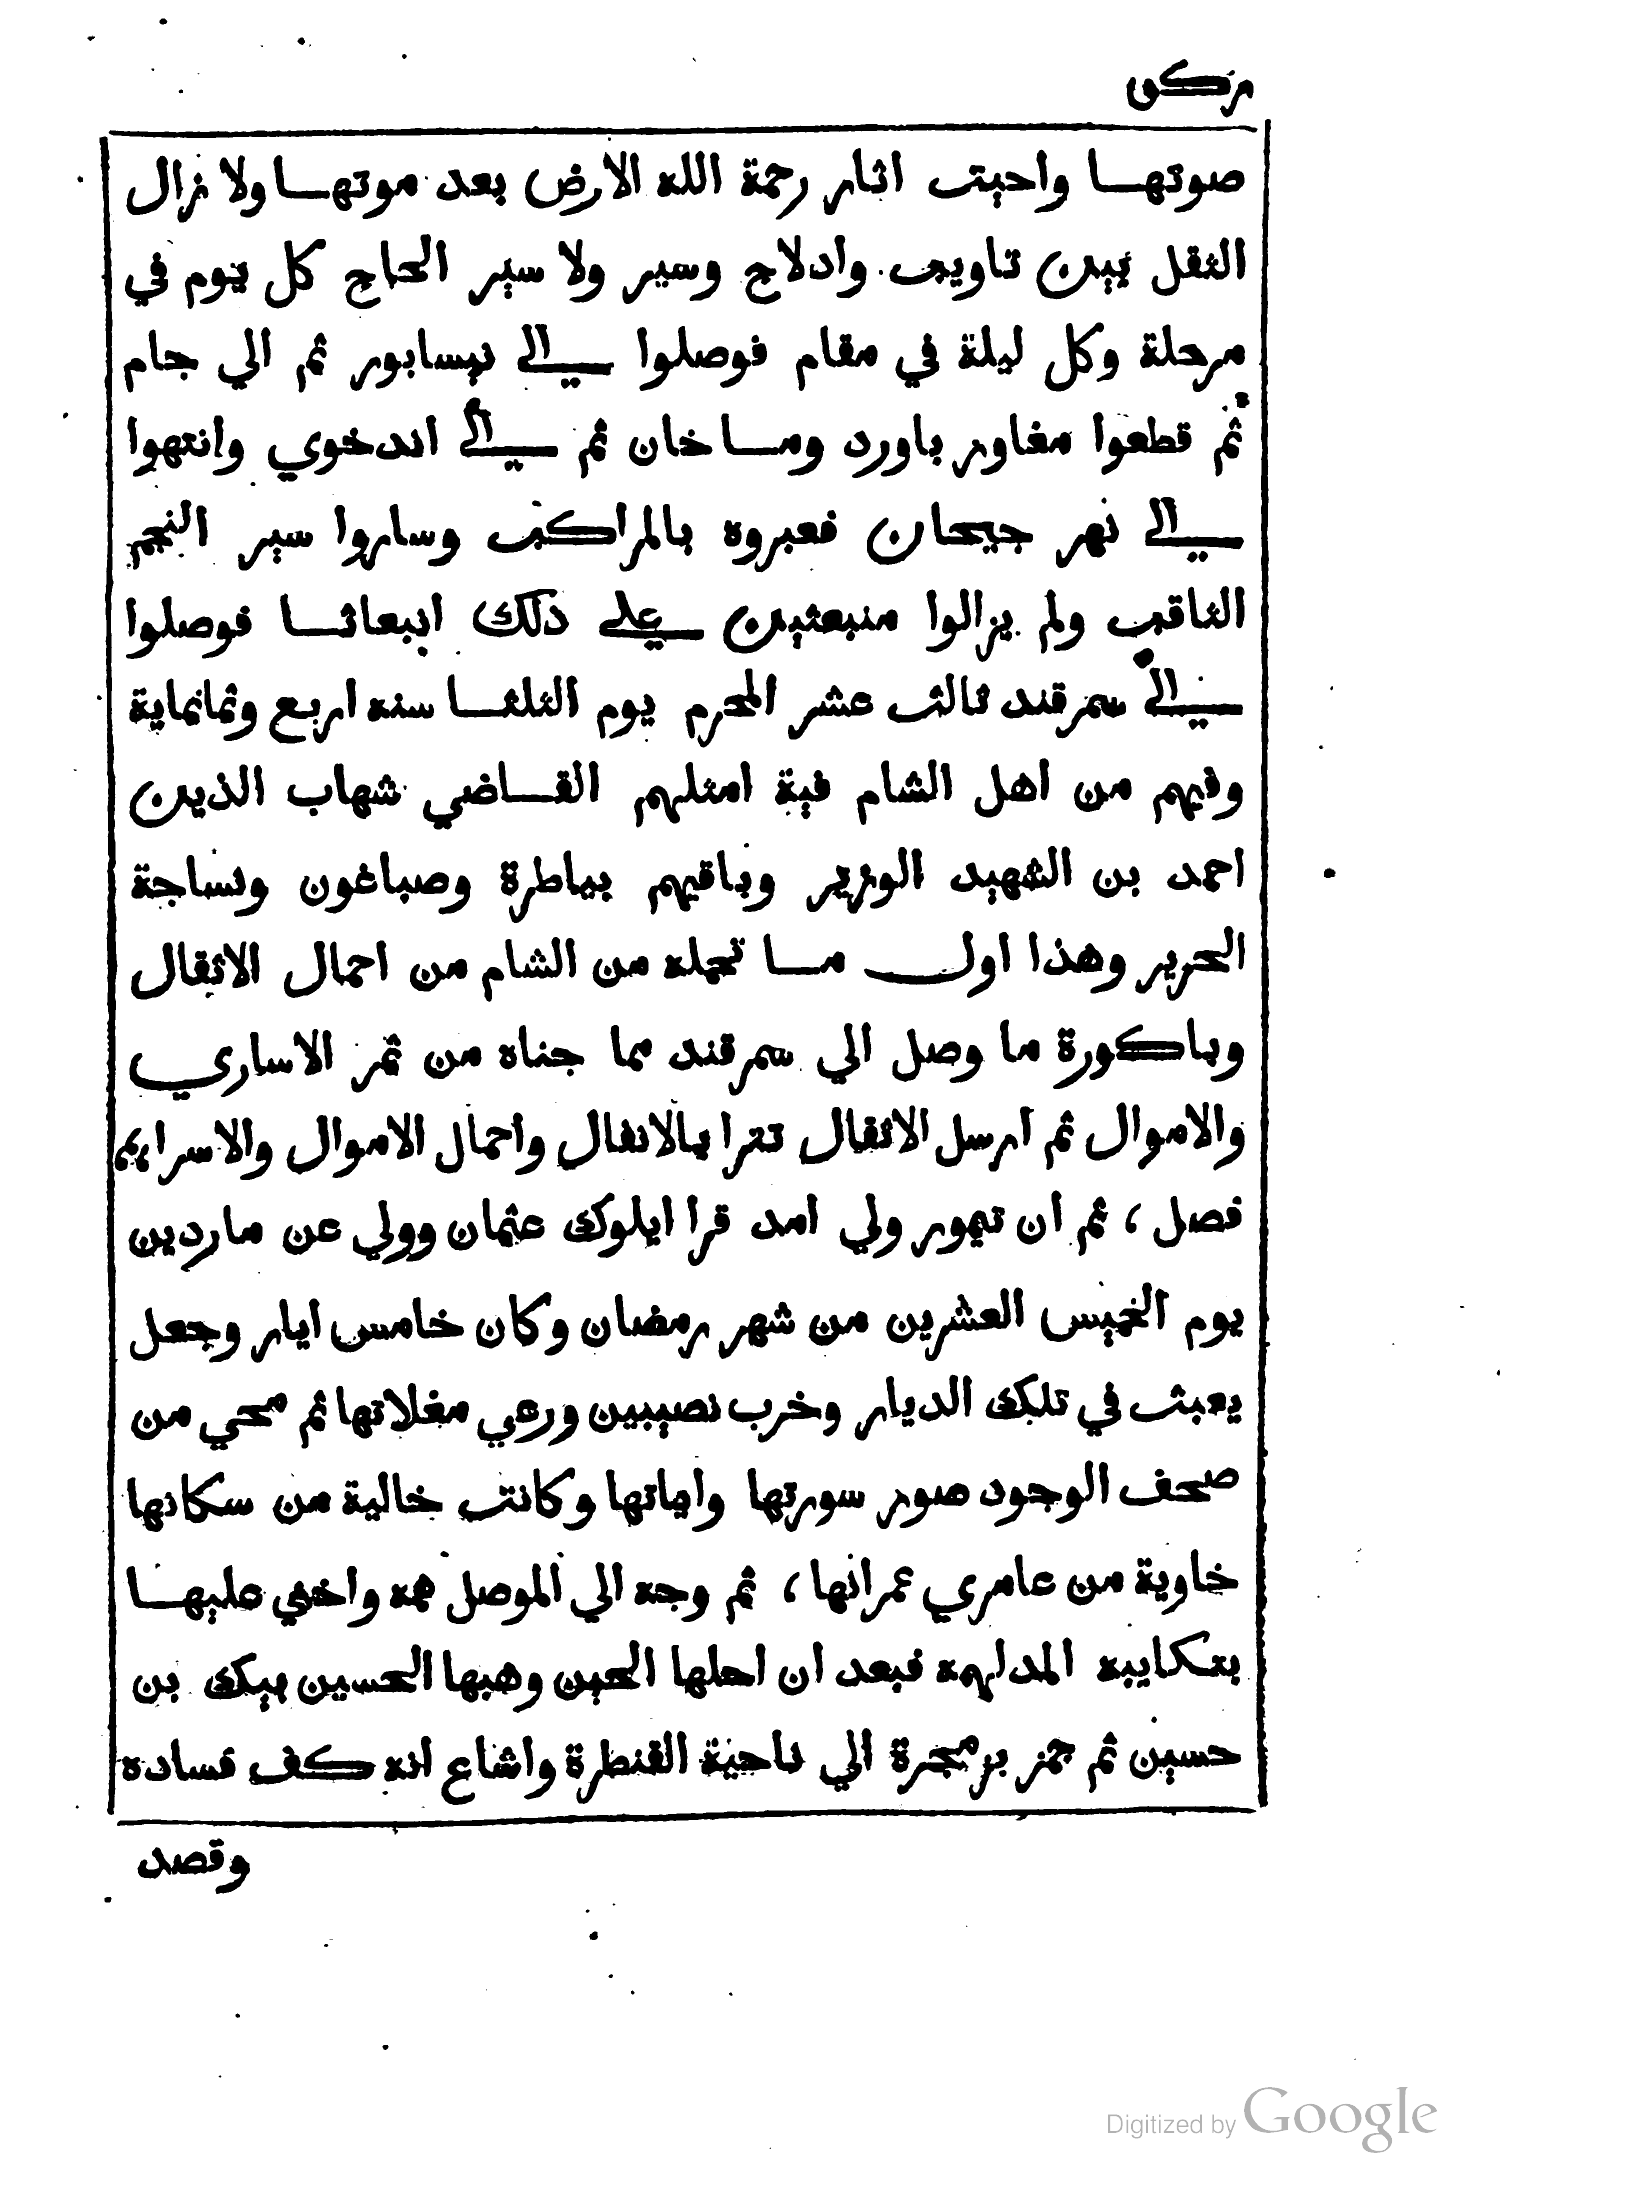 صوتها واحيت اثار رحمة الله الارض بعد موتها ولا زال
الثقل بين تاويب وادلاج وسير ولا سير الحاج كل يوم في
مرحلة وكل ليلة في مقام فوصلوا الي نيسابور ثم الي جام
ثم قطعوا مغاور باورد وماخان ثم الي اندخوي وانتهوا
الي نهر جيحان فعبروه بالمراكب وساروا سير النجم
الثاقب ولم يزالوا منبعثين علي ذلك انبعاثا فوصلوا
الي سمرقند ثالث عشر المحرم يوم الثلثا سنه اربع وثمانماية
وفيهم من اهل الشام فية امثلهم القاضي شهاب الذين
احمد بن الشهيد الوزير وباقيهم بياطرة وصباغون ونساجة
الحرير وهذا اول ما تحمله من الشام من احمال الاثقال
وباكورة ما وصل الي سمرقند مما جناه من ثمر الاساري
والاموال ثم ارسل الاثقال تترا بالانفال واحمال الاموال والاسرايم
فصل ، ثم ان تيمور ولي امد قرا ايلوك عثمان وولي عن ماردين
يوم الخميس العشرين من شهر رمضان وكان خامس ايار وجعل
يعبث في تلك الديار وخرب نصيبين ورعي مغلاتها ثم محي من
صحف الوجود صور سورتها واياتها وكانت خالية من سكانها
خاوية من عامري عمرانها ، ثم وجه الي الموصل همه واخني عليها
بعكايبه المدلهمه فبعد ان احلها الحين وهبها الحسين بيك بن
حسين ثم جمز بزمجرة الي ناحية القنطرة واشاع انه كف فساده
وقصد
Digitized by Google